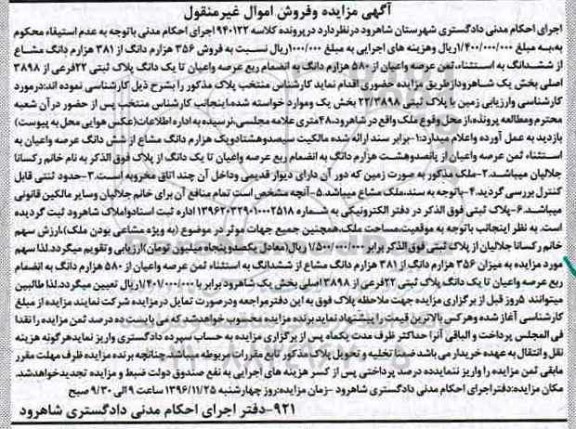 آگهی مزایده وفروش اموال غیرمنقول
اجرای احکام مدنی دادگستری شهرستان شاهرود درنظردارد درپرونده کلاسه ۹۴۰۱۲۲ اجرای احکام مدنی باتوجه به عدم استیفاء محکوم
به‌به مبلغ ۱/۴۰۰/۰۰۰/۰۰۰ریال وهزینه های اجرایی به مبلغ ۱/۰۰۰/۰۰۰ریال نسبت به فروش ۳۵۶ هزارم دانگ از ۳۸۱ هزارم دانگ مشاع
از ششدانگ به استثناء ثمن عرصه واعیان از ۵۸۰ هزارم دانگ به انضمام ربع عرصه واعیان تا یک دانگ پلاک ثبتی ۲۲فرعی از ۳۸۹۸
اصلی بخش یک شاهروداز طریق مزایده حضوری اقدام نماید کارشناس منتخب پلاک مذکور را بشرح ذیل کارشناسی نموده اند:درمورد
کارشناسی وارزیابی زمین با پلاک ثبتی ۲۲/۳۸۹۸ بخش یک وموارد خواسته شده،اینجانب کارشناس منتخب پس از حضور در آن شعبه
محترم ومطالعه پرونده،از محل وقوع ملک واقع در شاهرود،۴۸متری علامه مجلسی،نرسیده به اداره اطلاعات(عکس هوایی محل به پیوست)
بازدید به عمل آورده واعلام میدارد:۱-برابر سند ارائه شده مالکیت سیصدوهشتادویک هزارم دانگ مشاع از شش دانگ عرصه واعیان به
استثناء ثمن عرصه واعیان از پانصدوهشت هزارم دانگ به انضمام ربع عرصه واعیان تا یک دانگ از پلاک فوق الذکر به نام خانم رکسانا
جلالیان میباشد.۲-ملک مذکور به صورت زمین که دور آن دارای دیوار قدیمی وداخل آن چند اتاق مخروبه است.۳-حدود ثبتی قابل
کنترل بررسی گردید.۴-باتوجه به سند،ملک مشاع میباشد.۵-آنچه مشخص است تمام منافع آن برای خانم جلالیان وسایر مالکین قانونی
میباشد.۶-پلاک ثبتی فوق الذکر در دفتر الکترونیکی به شماره ۱۳۹۶۲۰۳۲۹۰۱۰۰۰۲۵۱۸ اداره ثبت اسنادواملاک شاهرود ثبت گردیده
است. به نظر اینجانب باتوجه به موقعیت،مساحت ملک،همچنین جمیع جهات موثر در موضوع (به ویژه مشاعی بودن ملک)ارزش سهم
خانم رکسانا جلالیان از پلاک ثبتی فوق الذکر برابر ۱/۵۰۰/۰۰۰/۰۰۰ ریال(معادل یکصدوپنجاه میلیون تومان)ارزیابی وتقویم میگردد.لذا سهم
مورد مزایده به میزان ۳۵۶ هزارم دانگ از ۳۸۱ هزارم دانگ مشاع از ششدانگ به استثناء ثمن عرصه واعیان از ۵۸۰ هزارم دانگ به انضمام
ربع عرصه واعیان تا یک دانگ پلاک ثبتی ۲۲فرعی از ۳۸۹۸ اصلی بخش یک شاهرود برابر با ۱/۴۰۱/۰۰۰/۰۰۰ریال تعیین میگردد.لذا طالبین
میتوانند ۵روز قبل از برگزاری مزایده جهت ملاحظه پلاک فوق به این دفتر مراجعه ودرصورت تمایل در مزایده شرکت نمایند مزایده از مبلغ
کارشناسی آغاز شده وهرکس بالاترین قیمت را پیشنهاد نماید برنده مزایده محسوب خواهدشد که می بایست ده درصد ثمن مزایده را نقدا
فی المجلس پرداخت و الباقی آنرا حداکثر ظرف مدت یکماه پس از برگزاری مزایده به حساب سپرده دادگستری واریز نماید هرگونه هزینه
نقل و انتقال به عهده خریدار می باشد ضمنا تخلیه و تحویل پلاک مذکور تابع مقررات مربوطه می باشد.چنانچه برنده مزایده ظرف مهلت مقرر
مابقی ثمن مزایده را واریز ننماید ده درصد پرداختی پس از کسر هزینه های اجرایی به نفع صندوق دولت ضبط و مزایده تجدید خواهدشد.
مکان مزایده:دفتر اجرای احکام مدنی دادگستری شاهرود -زمان مزایده:روز چهارشنبه ۱۳۹۶/۱۱/۲۵ ساعت ۹ الی ۹/۳۰ صبح
۹۲۱-دفتر اجرای احکام مدنی دادگستری شاهرود